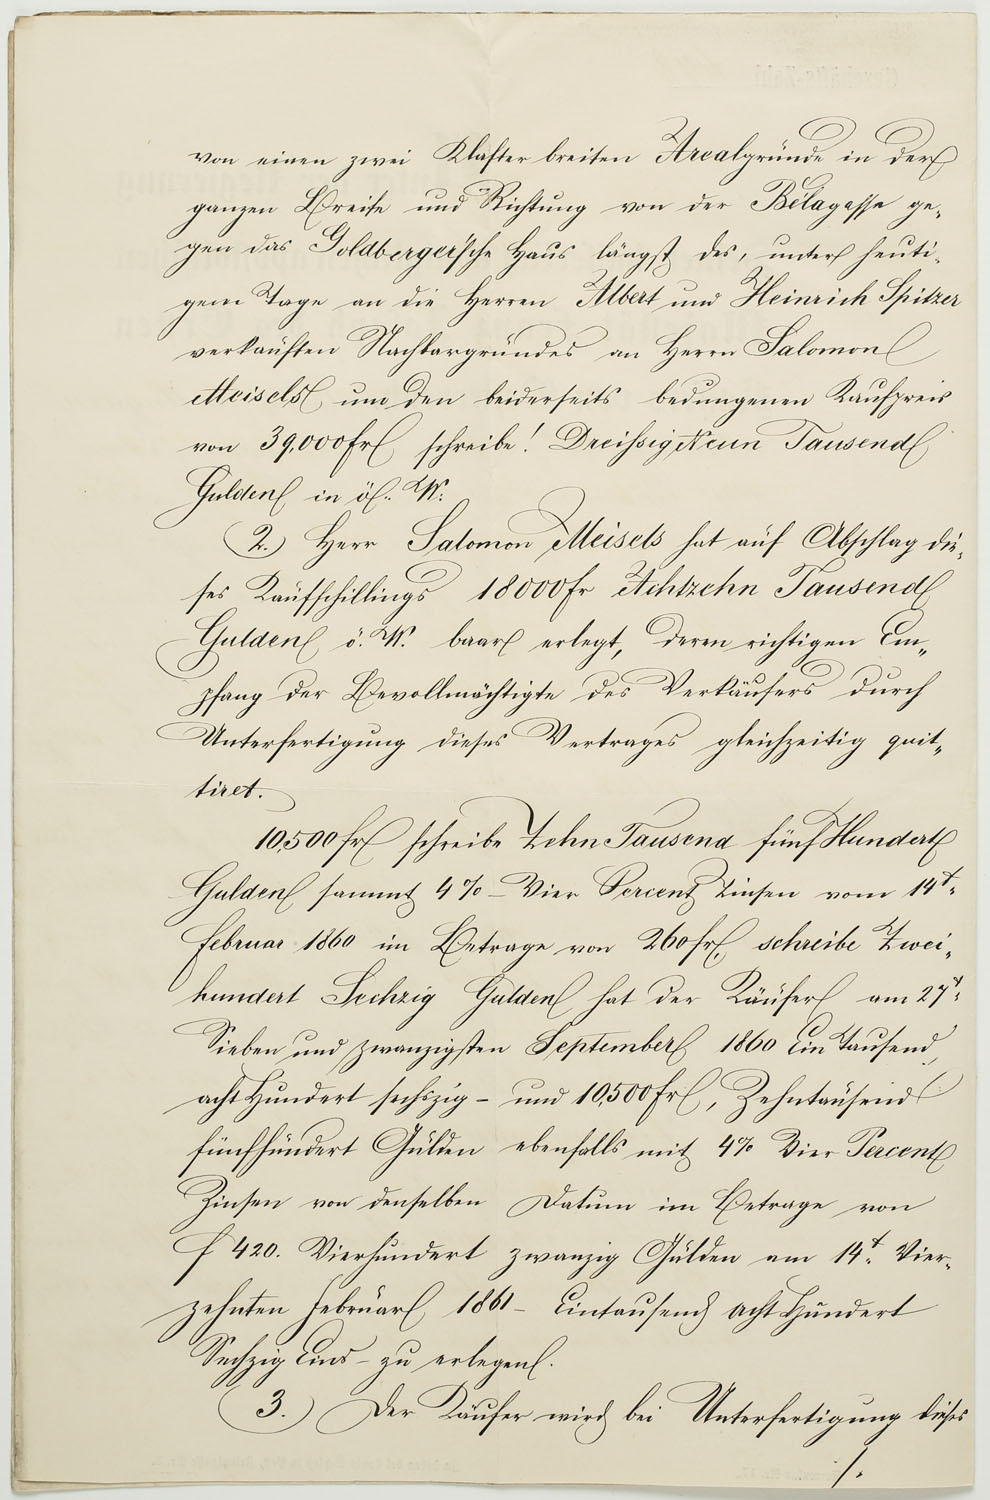 von einen zwei Klafter breiten Arealgründe in der
ganzen Breite und Richtung von der Bélagasse ge-
gen das Goldberger'sche Haus längst des, unter heuti-
gem Tage an die Herren Albert und Heinrich Spitzer
verkauften Nachbargrundes an Herrn Salomon
Meisels um den beiderseits bedungenen Kaufpreis
von 39,000 fr schreibe! Dreißig Neun Tausend
Gulden in öst. W.
2.) Herr Salomon Meisels hat auf Abschlag die-
ses Kaufschillings 18000 fr Achtzehn Tausend
Gulden ö. W. baar erlegt, deren richtigen Em-
pfang der Bevollmächtigte des Verkäufers durch
Unterfertigung dieses Vertrages gleichzeitig quit-
tiret.
10,500 fr schreibe Zehn Tausend fünf Hundert
Gulden sammt 4% – Vier Percent Zinsen vom 14t:
Februar 1860 im Betrage von 260 fr, schreibe Zwei-
hundert Sechzig Gulden hat der Käufer am 27t:
Sieben und zwanzigsten September 1860 Ein Tausend
acht Hundert sechszig – und 10,500 fr, Zehntausend
fünfhundert Gulden ebenfalls mit 4% Vier Percent
Zinsen von denselben Datum im Betrage von
f 420. Vierhundert zwanzig Gulden am 14t: Vier-
zehnten Februar 1861 – Eintausend acht Hundert
Sechzig Eins – zu erlegen.
3.) Der Käufer wird bei Unterfertigung dieses
/.